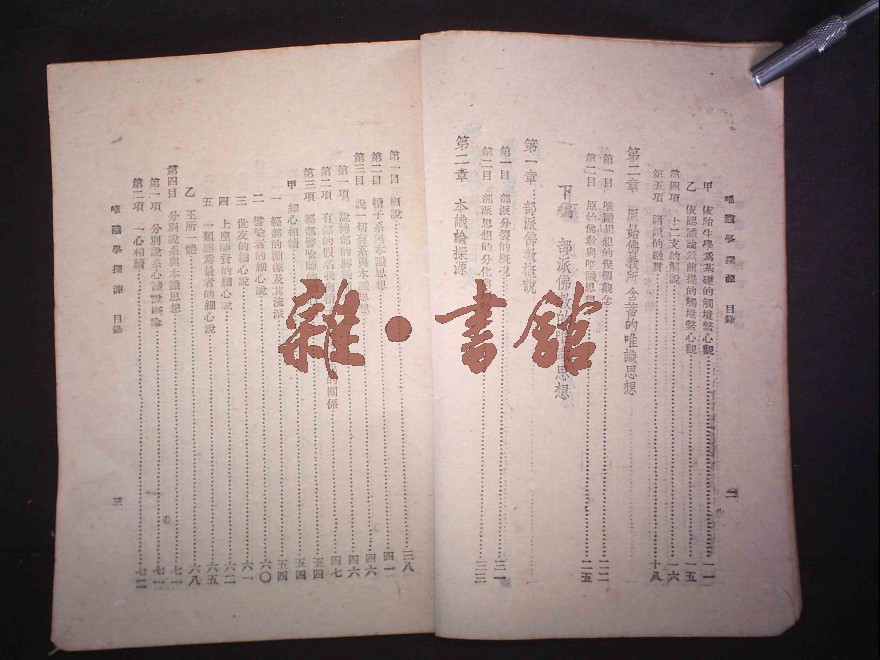 唯識學探源　目錄　二
甲　依胎生學為基礎的觸境繫心觀……一一
乙　依認識論為前提的觸境繫心觀……一五
第四項　十二支的解說……一六
第五項　諸識的融貫……十八
第二章　原始佛教所含蓄的唯識思想
第一目　唯識思想的幾個觀念……二二
第二目　原始佛教與唯識思想……二五
下編　部派佛教的唯識思想
第一章　部派佛教概說
第一目　部派分裂的概況……三一
第二目　部派思想的分化……三三
第二章　本識論探源
第一目　概說……三八
第二目　犢子系與本識思想……四一
第三目　說一切有系與本識思想……四六
第一項　說轉部的……四六
第二項　有部的假名我與……的關係……四七
第三項　經部譬喻師……五四
甲　細心相續……五四
一　經部的淵源及其流派……五四
二　譬喻者的細心說……六〇
三　世友的細心說……六一
四　上座師資的細心說……六二
五　一類經為量者的細心說……六五
乙　王所一體……六八
第四目　分別說系與本識思想……七一
第一項　分別說系心識說概論……七一
第二項　一心相續……七二
唯識學探源　目錄　三
雜·書館